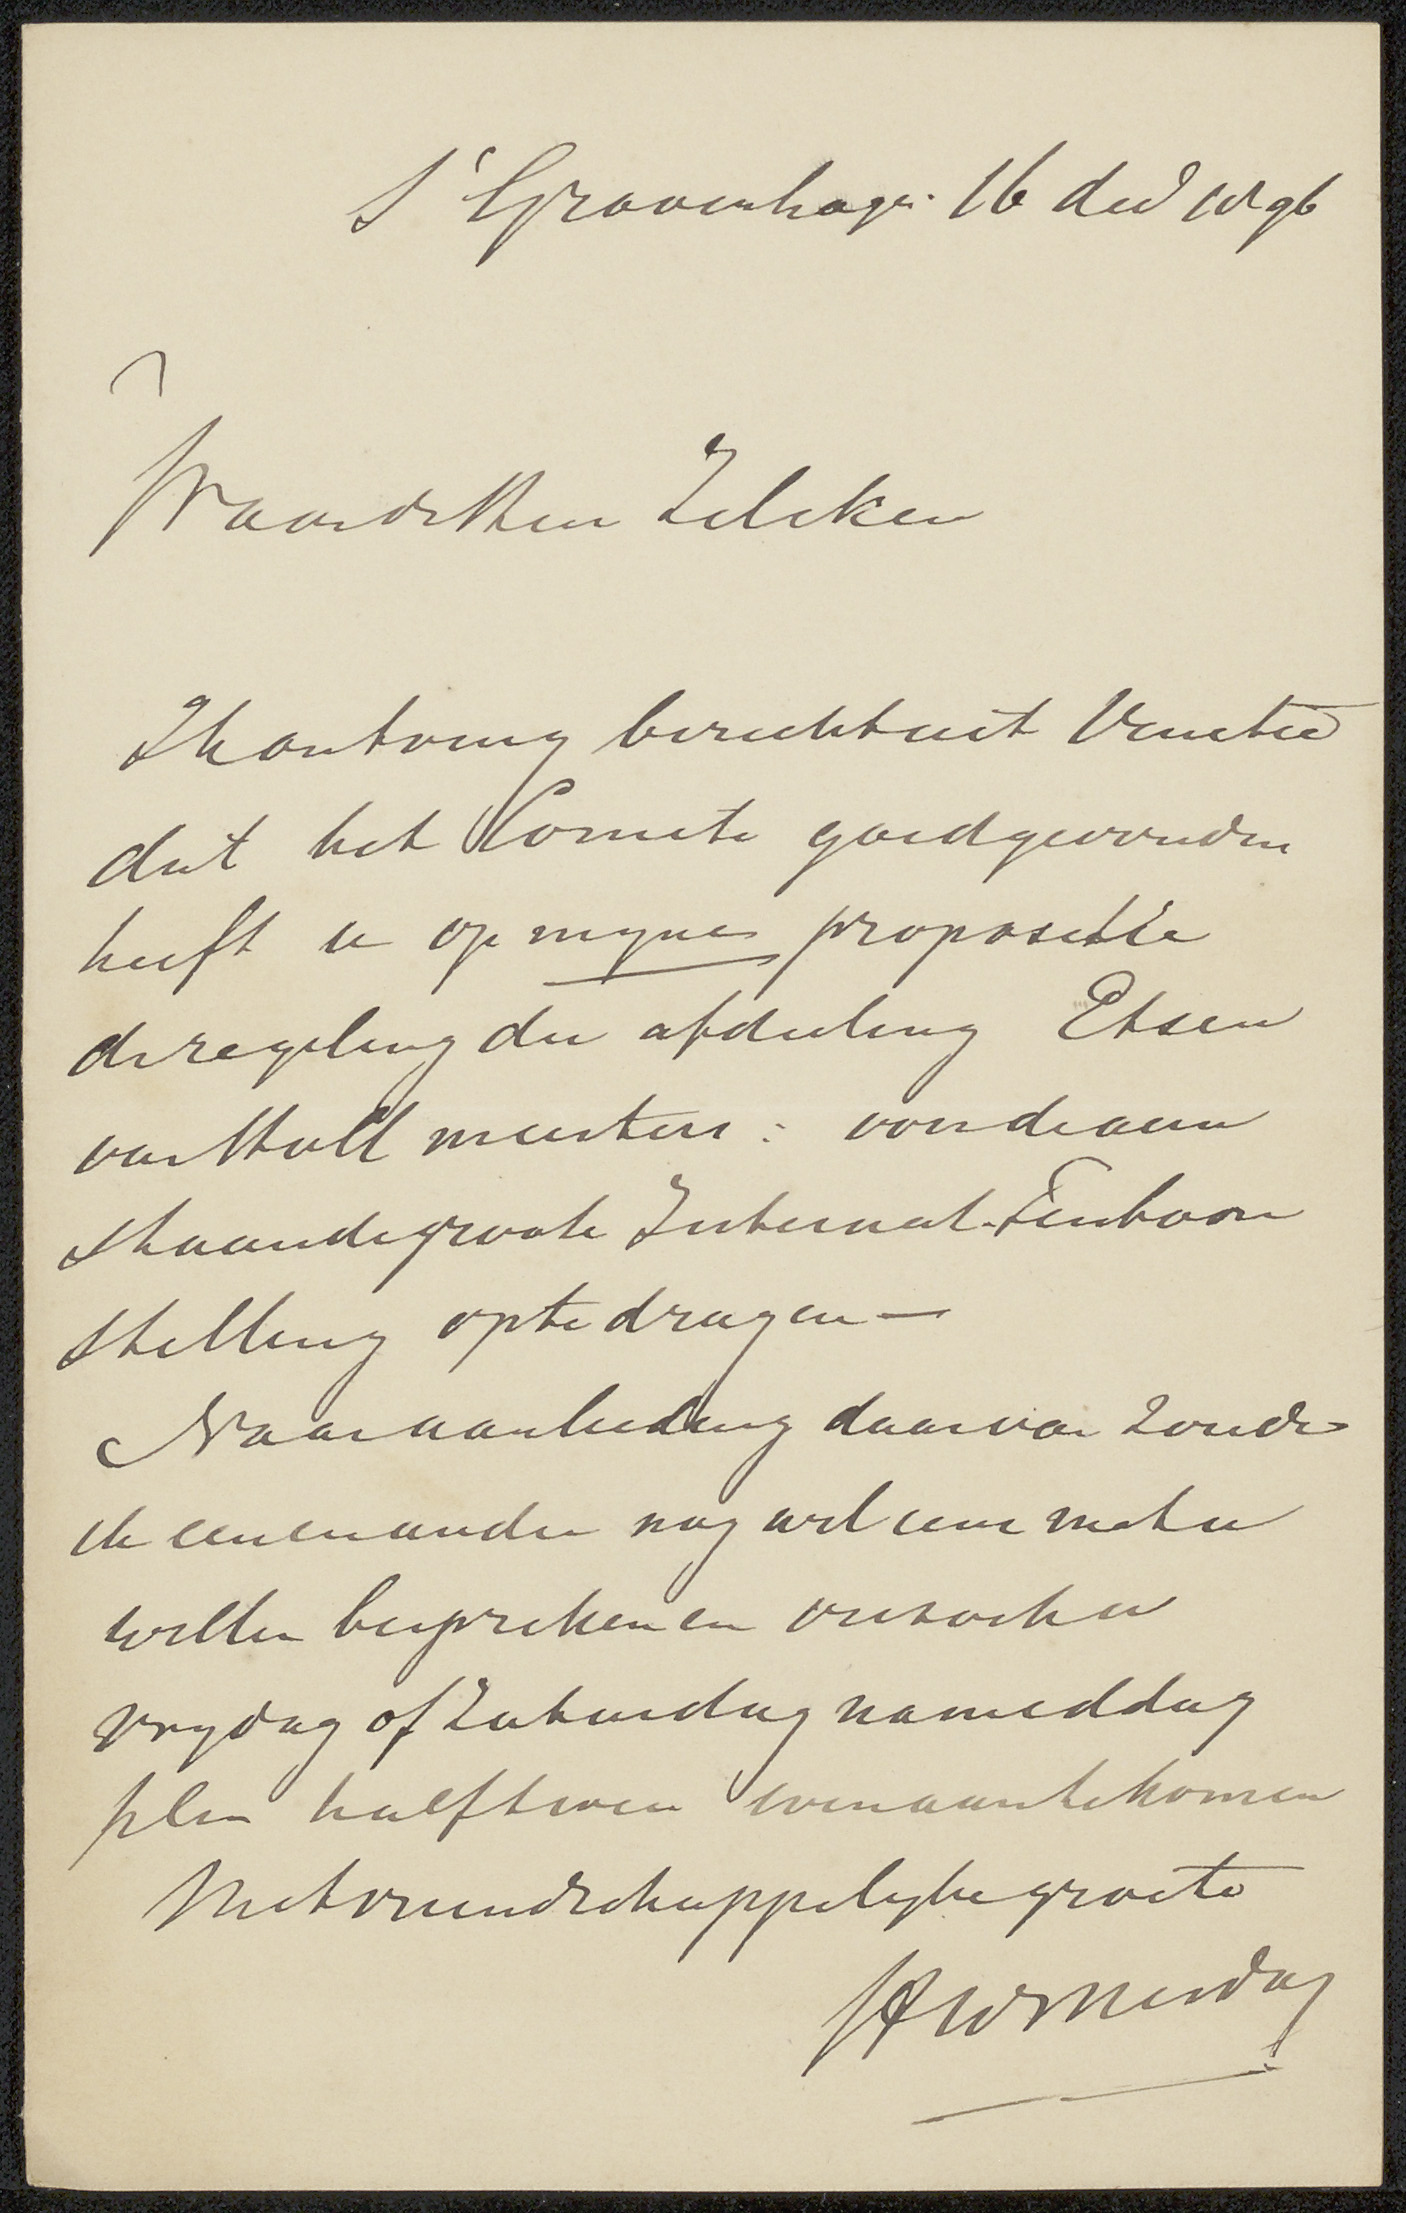 S'Gravenhage 16 dec 1896
Waarde Heer Zilcken
Ik ontving bericht uit Venetië
dat het Comite goedgevonden
heeft u op myne propositie
de regeling der afdeeling Etsen
van Holl meesters: voor de aan
staande groote Internat. Tentoon
stelling op te dragen —
Naar aanleiding daarvan zoude
ik een en ander nog wel eens met u
willen bespreken en verzoek u
vrydag of Zaturdag namiddag
half twee even aan te komen
Met vriendschappelyke groete
HWMesdag